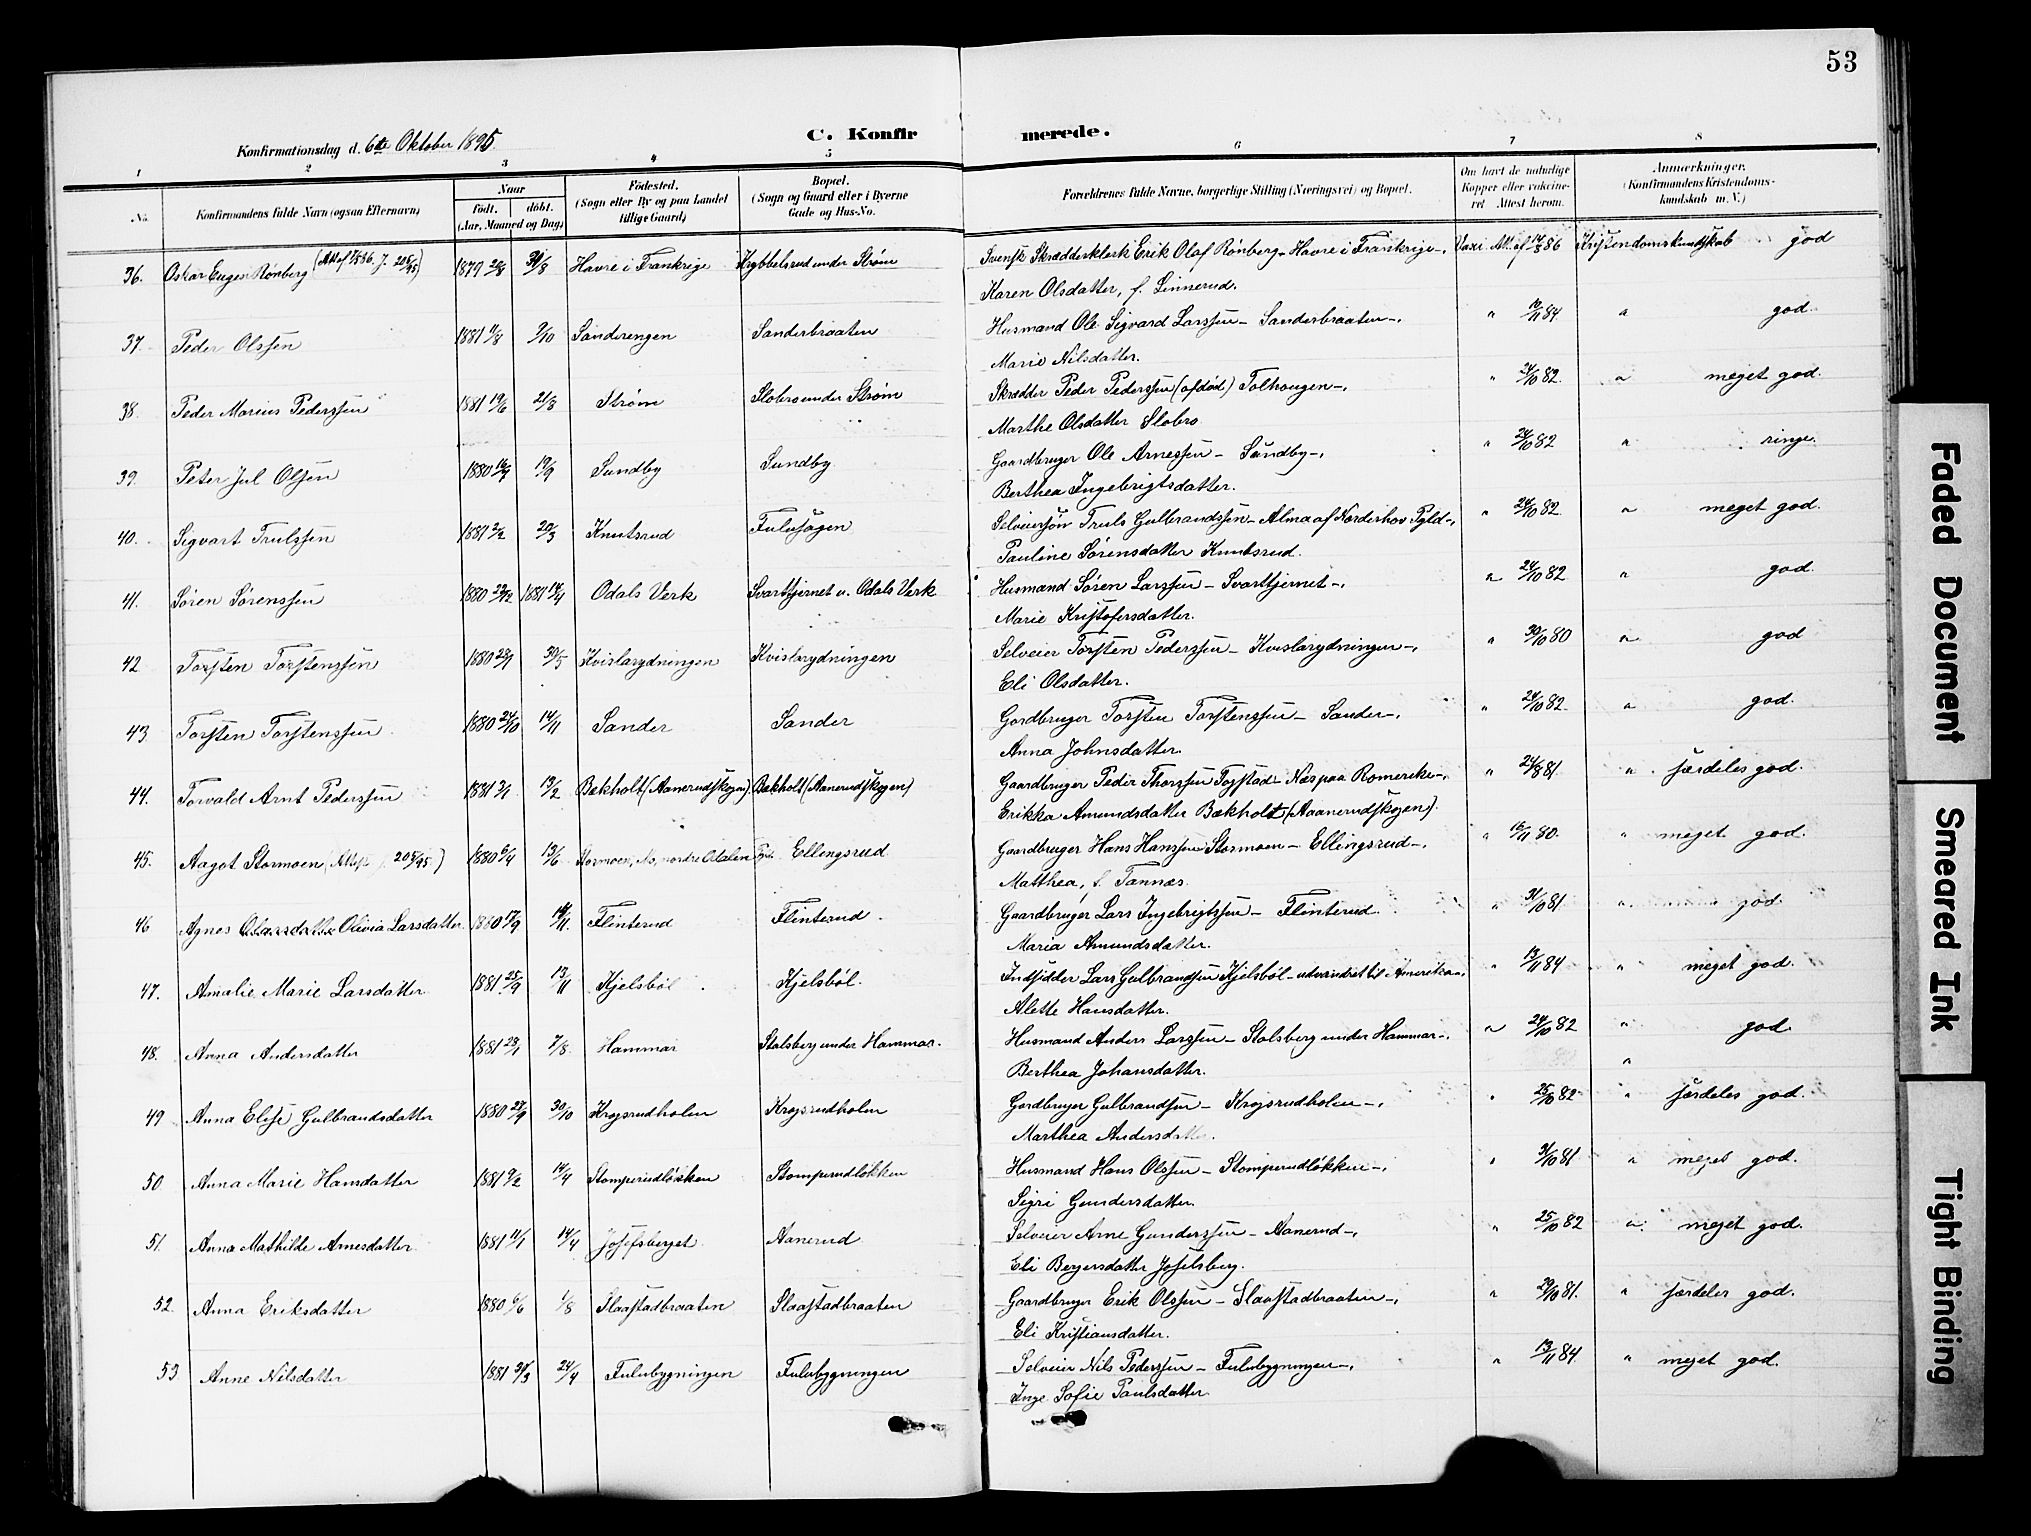 53
C. Konfirmerede.
Konfirmationsdag d. 6te Oktober 1895.
1 2 3 4 5 6 7 8
No. Konfirmandens fulde Navn (ogsaa Efternavn) Naar født. døbt. (Aar, Maaned og Dag) Fødested. (Sogn eller By og paa Landet tillige Gaard) Bopæl. (Sogn og Gaard eller i Byerne Gade og Hus-No. Forældrenes fulde Navne, borgerlige Stilling (Næringsvei) og Bopæl. Om havt de naturlige Kopper eller vaccineret Attest herom. Anmærkninger. (Konfirmandens Kristendomskundskab m. V.)
36. Oskar Eugen Rønberg 1879 26/8 31/8 Havre i Frankrige Krybbelsrud under Strøm Svensk Skrædderklerk Erik Olaf Rønberg - Havre i Frankrige -, Vaxi Att. af 14/8 86 Kristendomskundskab god
Karen Olsdatter, f. Linnerud.
37. Peder Olssen 1881 11/8 9/10 Sanderengen Sanderbraaten Husmand Ole Sigvard Larssen - Sanderbraaten -, " 10/11 84 " god.
Marie Nilsdatter.
38. Peder Marius Pederssen 1881 19/6 21/8 Strøm Slobro under Strøm Skrædder Peder Pederssen (afdød) Tolhougen -, " 24/10 82. " meget god.
Marthe Olsdatter Slobro
39. Peter Jul Olssen 1880 16/7 19/9 Sundby Sundby Gaardbruger Ole Arnessen - Sundby -, " 24/10 82 " ringe.
Berthea Ingebrigtsdatter.
40. Sigvart Trulssen 1881 2/2 20/3 Knutsrud Fulusagen Selveiersøn Truls Gulbrandssen - Alma af Norderhov Pgld -, " 24/10 82. " meget god.
Pauline Sørensdatter Knutsrud.
41. Søren Sørenssen 1880 22/12 1881 18/4 Odals Verk Svarttjernet u. Odals Verk Husmand Søren Larssen - Svarttjernet -, " 24/10 82 " god.
Marie Kristofersdatter.
42 Torsten Torstenssen 1880 23/1 30/5 Kvislarydningen Kvislarydningen Selveier Torsten Pederssen - Kvislarydningen -, " 30/10 80 " god
Eli Olsdatter.
43 Torsten Torstenssen 1880 24/10 14/11 Sander Sander Gordbruger Torsten Torstenssen - Sander -, " 24/10 82. " god.
Anna Johnsdatter.
44. Torvald Arnt Pederssen 1881 2/1 13/2 Bækholt (Aanerudskogen). Bækholt (Aanerudskogen) Gaardbruger Peder Thorssen Fogstad - Næs paa Romerike -, " 24/8 81. " særdeles god.
Erikka Amundsdatter Bækholt (Aaanerudskogen).
45. Aagot Stormoen 1880 6/4 13/6 Stormoen, No, nordre Odalen Pgd. Ellingsrud Gaardbruger Hans Hanssen Stormoen - Ellingsrud -, " 16/11 80. " meget god.
Matthea, f. Tannæs
46 Agnes Olivia Larsdatter 1880 17/9 14/11 Flinterud Flinterud. Gaardbruger Lars Ingebrigtssen - Flinterud. " 31/10 81 " god.
Maria Amundsdatter.
47. Amalie Marie Larsdatter 1881 25/9 13/11 Kjelsbøl Kjelsbøl. Indsidder Lars Gulbrandsen Kjelsbøl - udvandret til Amerika -, " 13/11 84 " meget god.
Alette Hansdatter.
48. Anna Andersdatter 1881 23/1 7/8 Hammar Stalsberg under Hammar. Husmand Anders Larssen - Stalsberg under Hammar -, " 24/10 82 " god.
Berthea Johansdatter. "
49 Anna Elise Gulbrandsdatter 1880 27/9 30/10 Krogsrudholen Krogsrudholen Gordbruger Gulbrandsen - Krogsrudholen -, " 25/10 82 " særdeles god.
Marthea Andersdatter.
50. Anna Marie Hansdatter 1881 9/2 14/4 Stomperudløkken Stomperudløkken Husmand Hans Olssen - Stomperudløkken -, " 31/10 81 " meget god.
Sigri Gundersdatter.
51. Anna Mathilde Arnesdatter 1881 11/1 14/4 Josefsberget. Aanerud Selveier Arne Gunderssen - Aanerud -, " 25/10 82 " meget god.
Eli Bergersdatter Josefsberg.
52. Anna Eriksdatter 1880 6/6 1/8 Slaastadbraaten Slaastadbraaten Gaardbruger Erik Olssen - Slaastadbraaten -, " 29/10 81. " særdeles god.
Eli Kristiansdatter.
53 Anne Nilsdatter 1881 21/3 24/4 Fulubygningen Fulubygningen Selveier Nils Pederssen - Fulubygningen -, " 13/11 84. " meget god.
Inge Sofie Paulsdatter
Faded Document
Smeared Ink
Tight Binding